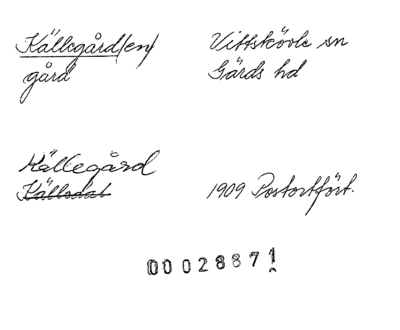 Källegård(en)
gård
Vittskövle sn
Gärds hd
Källegård
Källsdal
1909 Postortfört.
00028871